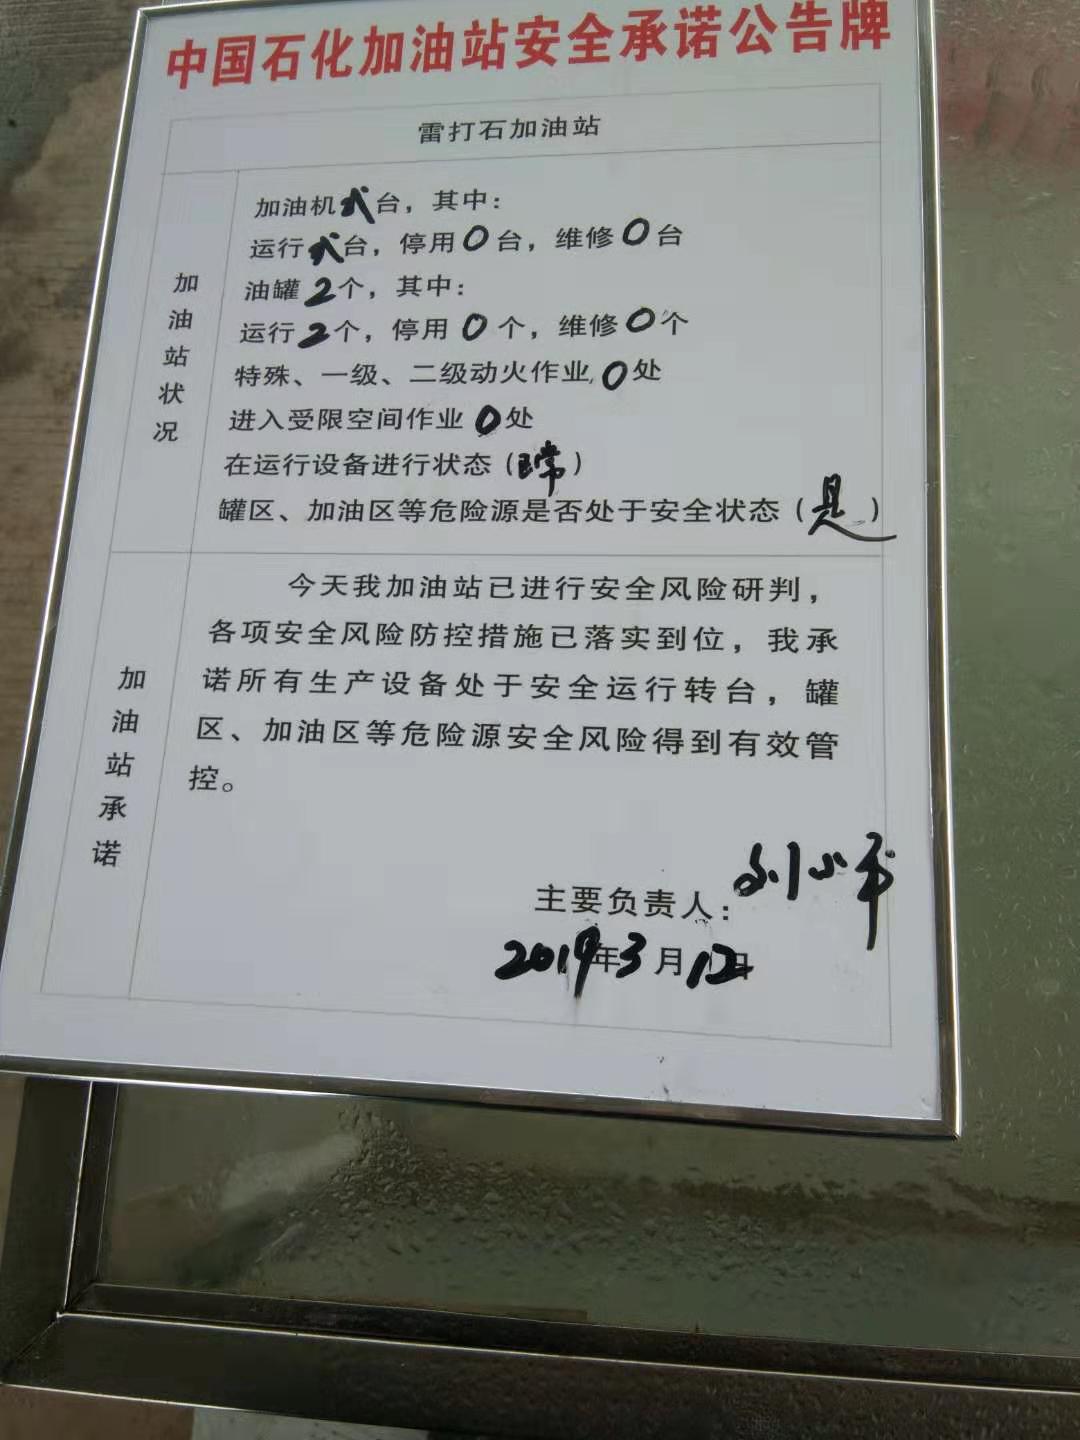 中国石化加油站安全承诺公告牌
雷打石加油站
加油站状况
加油机弐台，其中：
运行弐台，停用0台，维修0台
油罐2个，其中：
运行2个，停用0个，维修0个
特殊、一级、二级动火作业0处
进入受限空间作业0处
在运行设备进行状态（正常）
罐区、加油区等危险源是否处于安全状态（是）
加油站承诺
今天我加油站已进行安全风险研判，
各项安全风险防控措施已落实到位，我承
诺所有生产设备处于安全运行转台，罐
区、加油区等危险源安全风险得到有效管
控。
主要负责人：刘小平
2019年3月12日